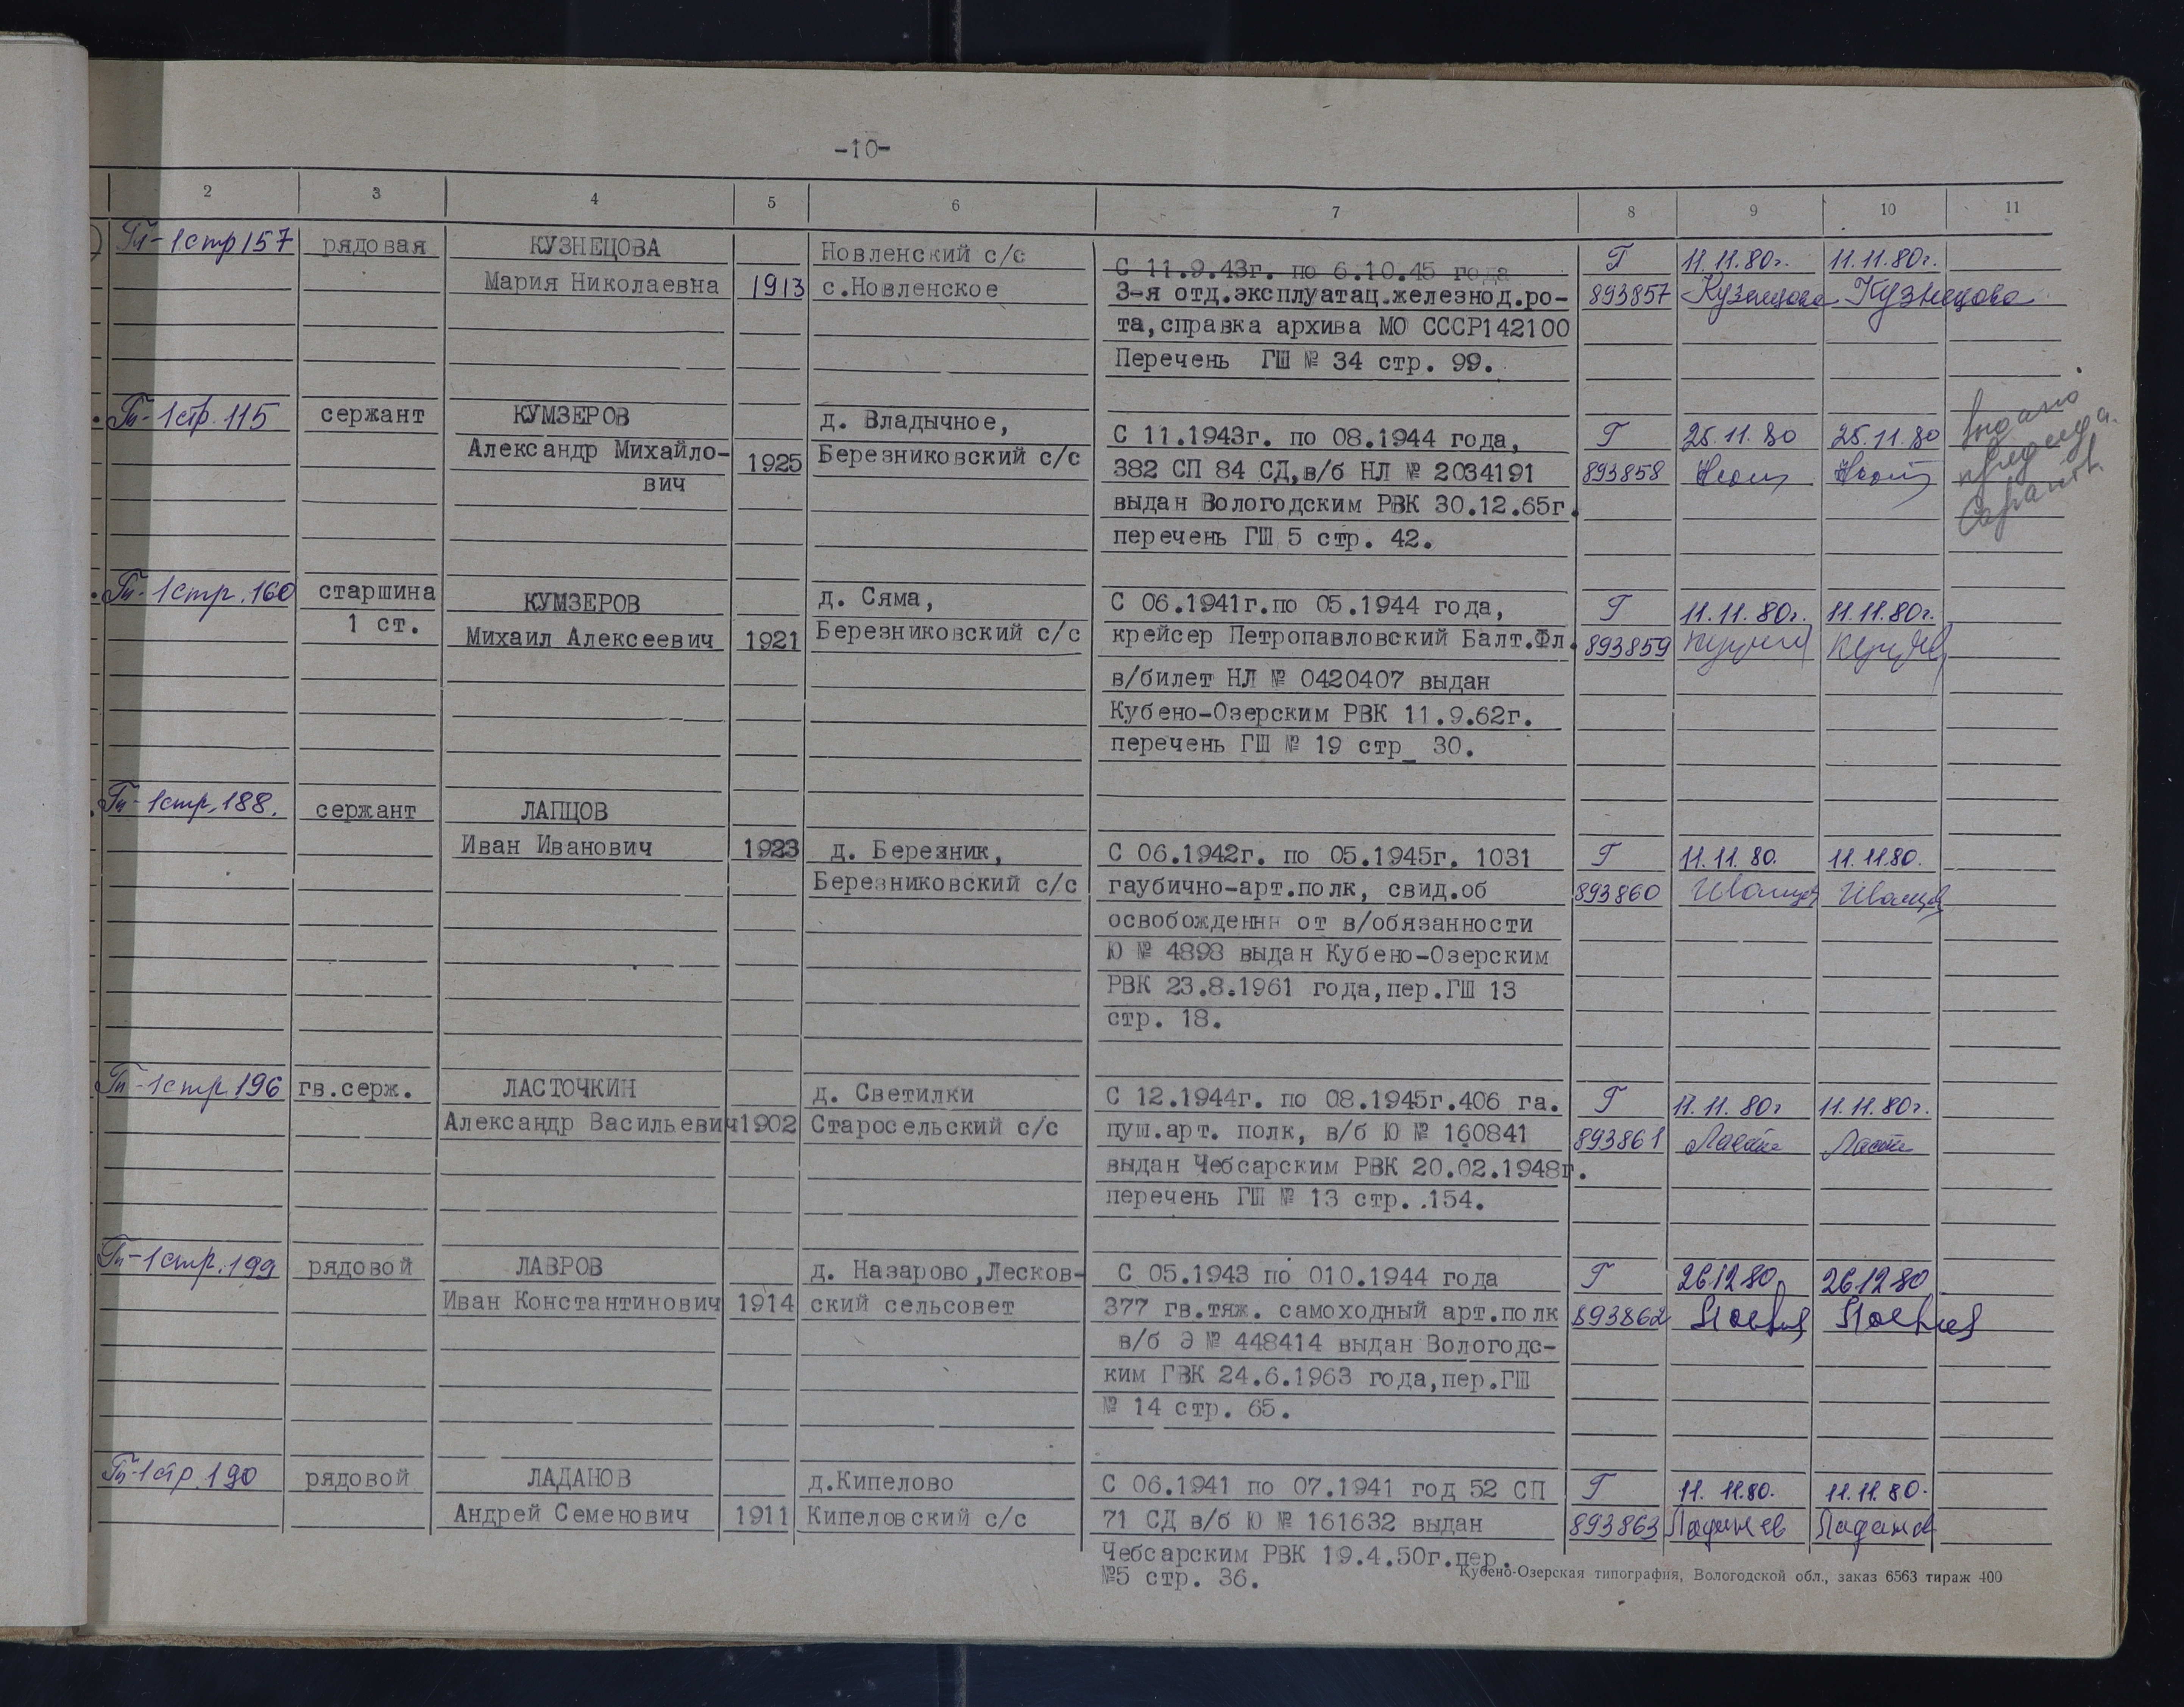 -10-
2 3 4 5 6 7 8 9 10 11
Гп-1стр157 рядовая КУЗНЕЦОВА Новленский с/с С 11.9.43г. по 6.10.45 года Г 11.11.80г. 11.11.80г.
Мария Николаевна 1913 с.Новленское 3-я отд.эксплуатац.железнод.ро- 893857 Кузнецова Кузнецова
та,справка архива МО СССР142100
Перечень ГШ № 34 стр. 99.
Гп-1стр.115 сержант КУМЗЕРОВ д. Владычное, С 11.1943г. по 08.1944 года, Г 25.11.80 25.11.80
Александр Михайло- 1925 Березниковский с/с 382 СП 84 СД,в/б НЛ № 2034191 893858
вич выдан Вологодским РВК 30.12.65г.
перечень ГШ 5 стр. 42.
Гп-1стр.160 старшина КУМЗЕРОВ д. Сяма, С 06.1941г.по 05.1944 года, Г 11.11.80г. 11.11.80г.
1 ст. Михаил Алексеевич 1921 Березниковский с/с крейсер Петропавловский Балт.Фл. 893859
в/билет НЛ № 0420407 выдан
Кубено-Озерским РВК 11.9.62г.
перечень ГШ № 19 стр_ 30.
Гп-1стр.188. сержант ЛАПЦОВ
Иван Иванович 1923 д. Березник, С 06.1942г. по 05.1945г. 1031 Г 11.11.80. 11.11.80.
Березниковский с/с гаубично-арт.полк, свид.об 893860
освобождении от в/обязанности
Ю № 4898 выдан Кубено-Озерским
РВК 23.8.1961 года,пер.ГШ 13
стр. 18.
Гп-1стр.196 гв.серж. ЛАСТОЧКИН д. Светилки С 12.1944г. по 08.1945г.406 га. Г 11.11.80г 11.11.80г.
Александр Васильевич 1902 Старосельский с/с пуш.арт. полк, в/б Ю № 160841 893861
выдан Чебсарским РВК 20.02.1948г.
перечень ГШ № 13 стр. .154.
Гп-1стр.199 рядовой ЛАВРОВ д. Назарово,Лесков- С 05.1943 по 010.1944 года Г 26.12.80 26.12.80
Иван Константинович 1914 ский сельсовет 377 гв.тяж. самоходный арт.полк 893862
в/б Э № 448414 выдан Вологодс-
ким ГВК 24.6.1963 года,пер.ГШ
№ 14 стр. 65.
Гп-1стр.190 рядовой ЛАДАНОВ д.Кипелово С 06.1941 по 07.1941 год 52 СП Г 11.11.80. 11.11.80.
Андрей Семенович 1911 Кипеловский с/с 71 СД в/б Ю № 161632 выдан 893863 Ладанов Ладанов
Чебсарским РВК 19.4.50г.пер.
№5 стр. 36.
Кубено-Озерская типография, Вологодской обл., заказ 6563 тираж 400